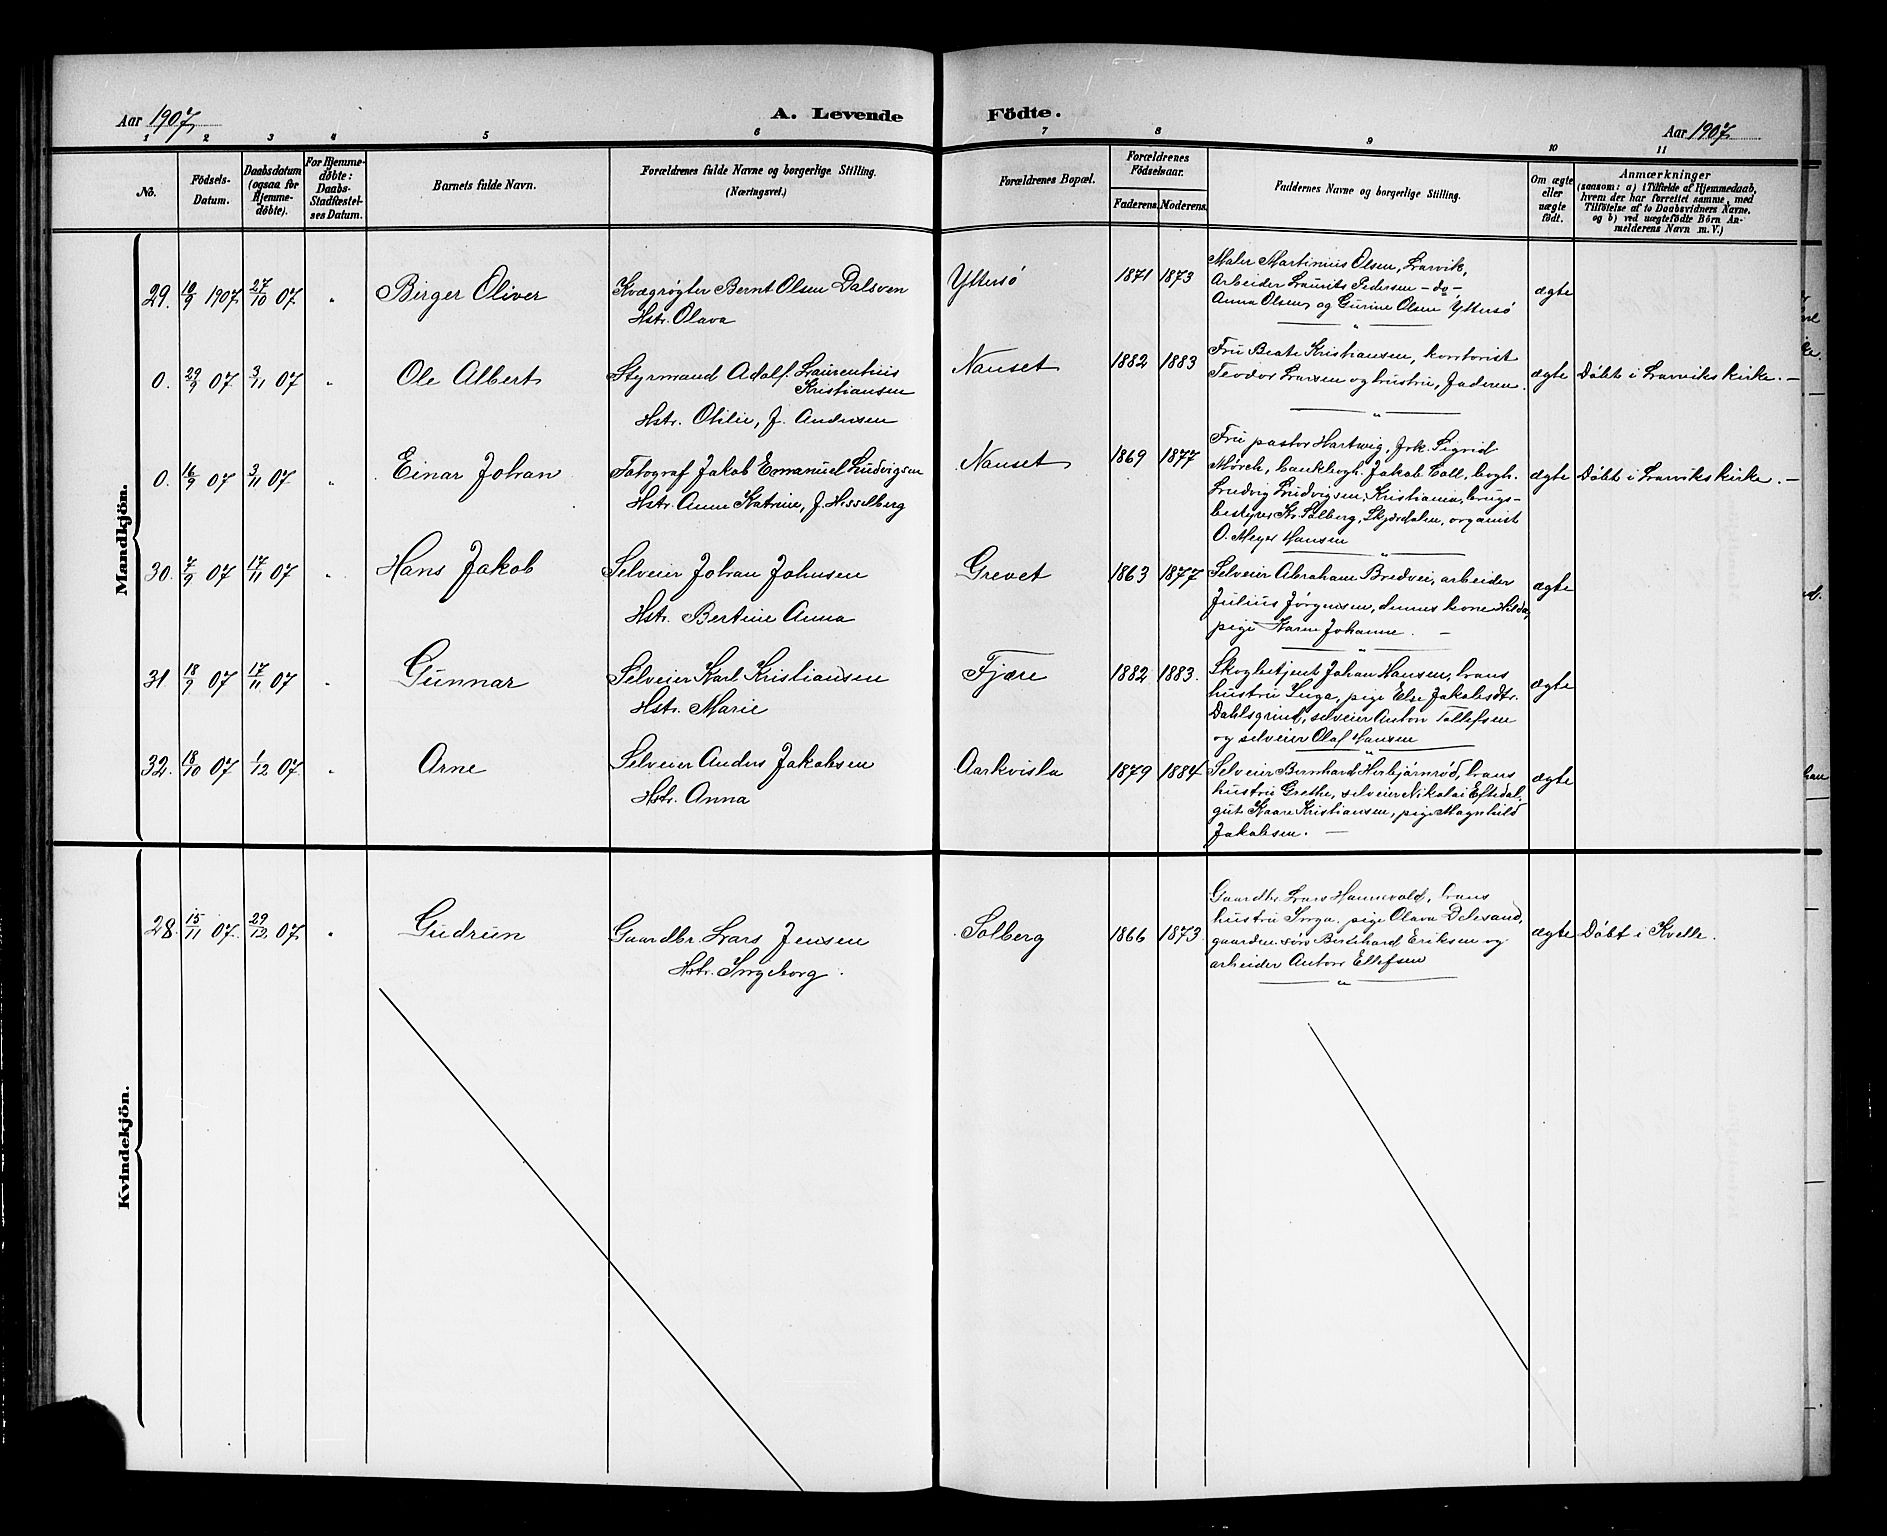 Aar 1907
A. Levende
Födte.
Aar 1907.
1 2 3 4 5 6 7 8 9 10 11
No.
Födsels-
Datum.
Daabsdatum
(ogsaa for
Hjemme-
døbte).
For Hjemme-
døbte:
Daabs-
Stadfæstel-
ses Datum.
Barnets fulde Navn.
Forældrenes fulde Navne og borgerlige Stilling.
(Næringsvei.)
Forældrenes Bopæl.
Forældrenes
Födselsaar.
Faderens. Moderens.
Faddernes Navne og borgerlige Stilling.
Om ægte
eller
uægte
födt.
Anmærkninger
(saasom: a) i Tilfælde af Hjemmedaab,
hvem der har forrettet samme, med
Tilföielse af to Daabsvidners Navne,
og b) ved uægtefödte Börn An-
melderens Navn m. V.)
Mandkjön.
29. 10/9 1907. 27/10 07 " Birger Oliver
Kvægrøgter Bernt Olsen Dalsven
Hstr. Olava
Yttersö 1871 1873
Maler Martinius Olsen, Larvik,
Arbeider Lauritz Pedersen - do -
Anna Olsen, og Gurine Olsen Yttersö
ægte
0. 29/9 07 3/11 07 " Ole Albert
Styrmand Adolf Laurentius
Kristiansen
Hstr. Otilie, f. Andersen
Nanset 1882 1883
Fru Beate Kristiansen, kontorist
Teodor Larsen og hustru, Faderen.
ægte Döbt i Larviks kirke. -
0. 16/9 07 3/11 07 " Einar Johan
Fotograf Jakob Emanuel Ludvigsen
Hstr. Anne Katrine, f. Hesselberg
Nanset 1869 1877
Fru pastor Hartwig, frk. Sigrid
Mørch, bankbogh. Jakob Coll, bogh.
Ludvig Ludvigsen, Kristiania, brugs-
bestyrer Kr. Solberg, Skjærdalen, organist
O. Meyer Hansen
ægte Döbt i Larviks kirke. -
30. 7/9 07 17/11 07 " Hans Jakob
Selveier Johan Johnsen
Hstr. Bertine Anna
Grevet 1863 1877
Selveier Abraham Bredvei, arbeider
Julius Jørgensen, dennes kone Hilda,
pige Karen Johanne. -
ægte
31 18/9 07 17/11 07 " Gunnar
Selveier Karl Kristiansen
Hstr. Marie
Fjære 1882 1883.
Skogbetjent Johan Hansen, hans
hustru Inga, pige Else Jakobsdtr.
Dahlsgrind, selveier Anton Tollefsen
og selveier Olaf Hansen
ægte
32. 18/10 07 1/12 07. " Arne
Selveier Anders Jakobsen
Hstr. Anna
Aarkvisla 1879 1884
Selveier Bernhard Herbjörnröd, hans
hustru Grethe, selveier Nikolai Eftedal,
gut Kaare Kristiansen, pige Magnhild
Jakobsen. -
ægte
Kvindekjön.
28. 15/11 07. 29/12 07. " Gudrun
Gaardbr. Lars Jensen
Hstr. Ingeborg.
Solberg 1866 1873.
Gaardbr. Lars Hannevold, hans
hustru Inga, pige Olava
gaarden. Bernhard Eriksen og
arbeider Anton Ellefsen
ægte Döbt i Kvelle.